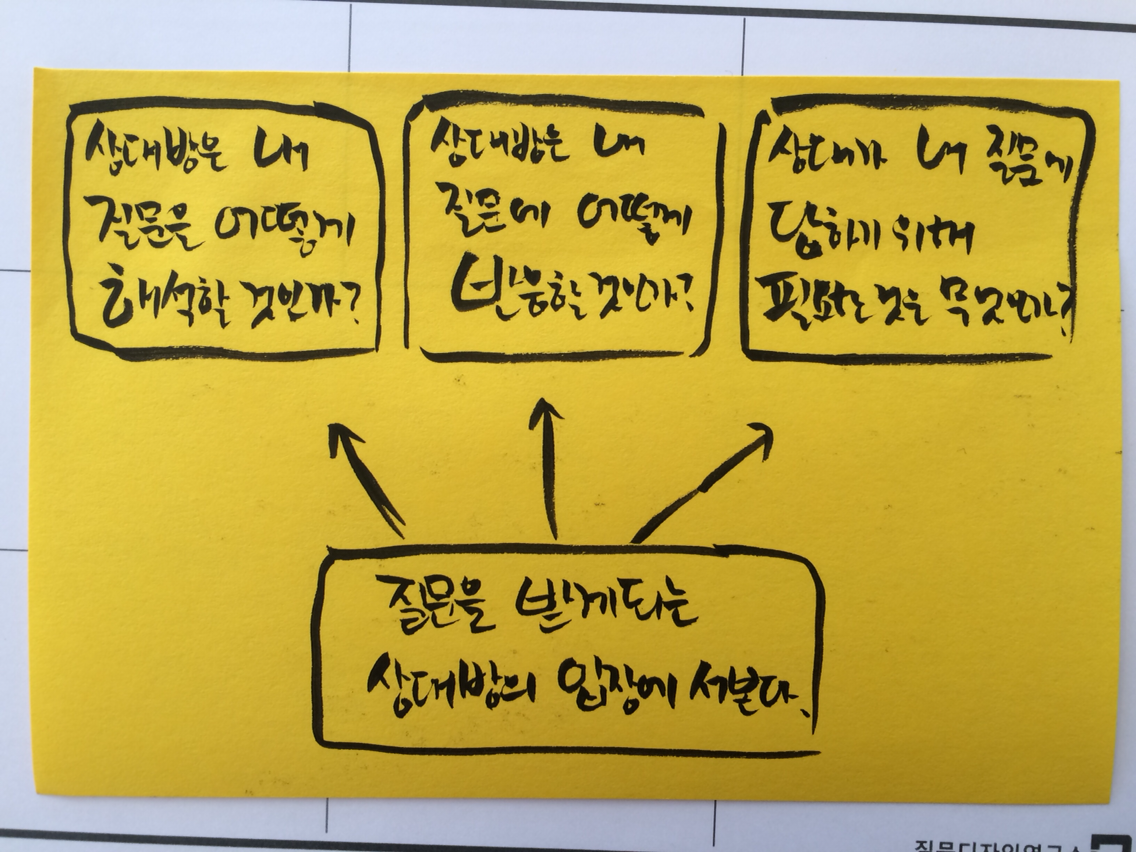 상대방은 내
질문을 어떻게
해석할 것인가?
상대방은 내
질문에 어떻게
반응할 것인가?
상대가 내 질문에
답하기 위해
필요한 것은 무엇인가?
질문을 받게되는
상대방의 입장에 서본다.
질문디자인연구소